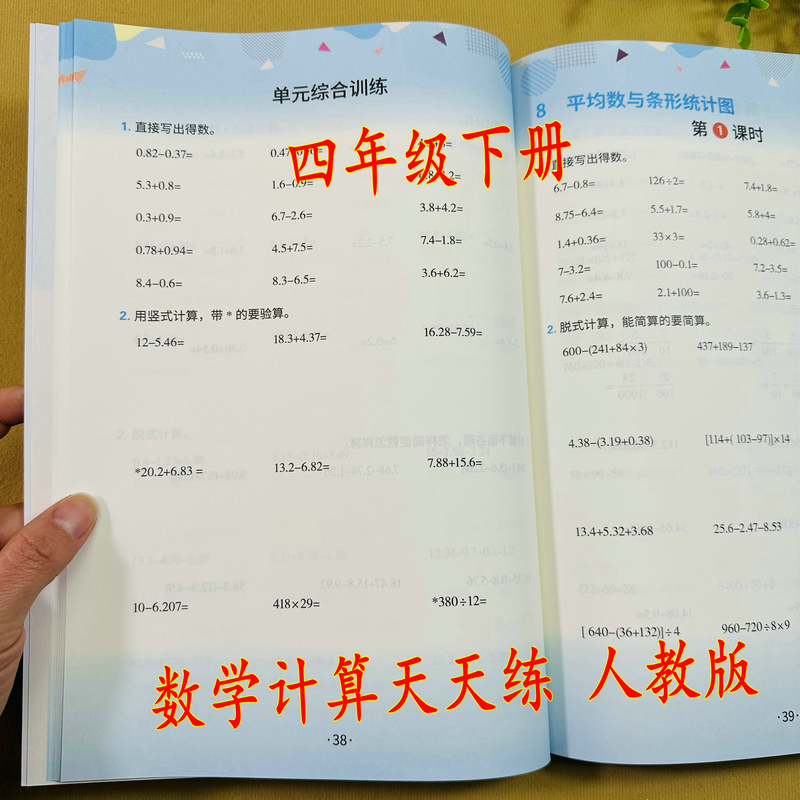 单元综合训练
1. 直接写出得数。
0.82−0.37=
5.3+0.8= 1.6−0.9=
0.3+0.9= 6.7−2.6= 3.8+4.2=
0.78+0.94= 4.5+7.5= 7.4−1.8=
8.4−0.6= 8.3−6.5= 3.6+6.2=
2. 用竖式计算，带 * 的要验算。
12−5.46= 18.3+4.37= 16.28−7.59=
*20.2+6.83 = 13.2−6.82= 7.88+15.6=
10−6.207= 418×29= *380÷12=
·38·
8 平均数与条形统计图
第1课时
直接写出得数。
6.7−0.8= 126÷2= 7.4+1.8=
8.75−6.4= 5.5+1.7= 5.8+4=
1.4+0.36= 33×3= 0.28+0.62=
7−3.2= 100−0.1= 7.2−3.5=
7.6+2.4= 2.1+100= 3.6−1.3=
2. 脱式计算，能简算的要简算。
600−(241+84×3) 437+189−137
4.38−(3.19+0.38) [114+( 103−97)]×14
13.4+5.32+3.68 25.6−2.47−8.53
[ 640−(36+132)]÷4 960−720÷8×9
·39·
四年级下册
数学计算天天练 人教版